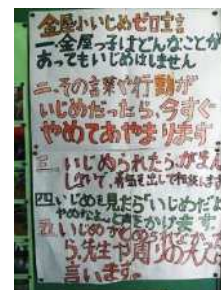 金屋小いじめゼロ宣言
一、金屋っ子はどんなことが
あってもいじめはしません
二、その言葉や行動が
いじめだったら、今すぐ
やめてあやまります
三、いじめられたら、がまん
しないで、勇気を出して相談します
四、いじめを見たら「いじめだよ
やめなよ」と声をかけます。
五、いじめ
ら、先生や周りの大人に
言います。